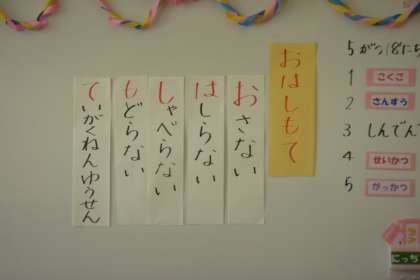 おはしもて
おさない
はしらない
しゃべらない
もどらない
ていがくねんゆうせん
5がつ18にち
1 こくご
2 さんすう
3 しんでん
4 せいかつ
5 がっかつ
にっち